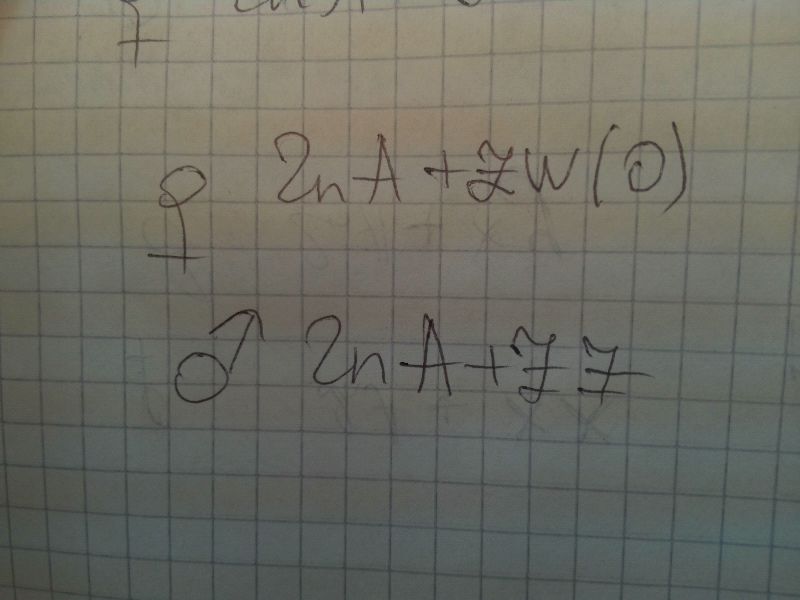 ♀ 2nA + ZW (O)
♂ 2nA + ZZ